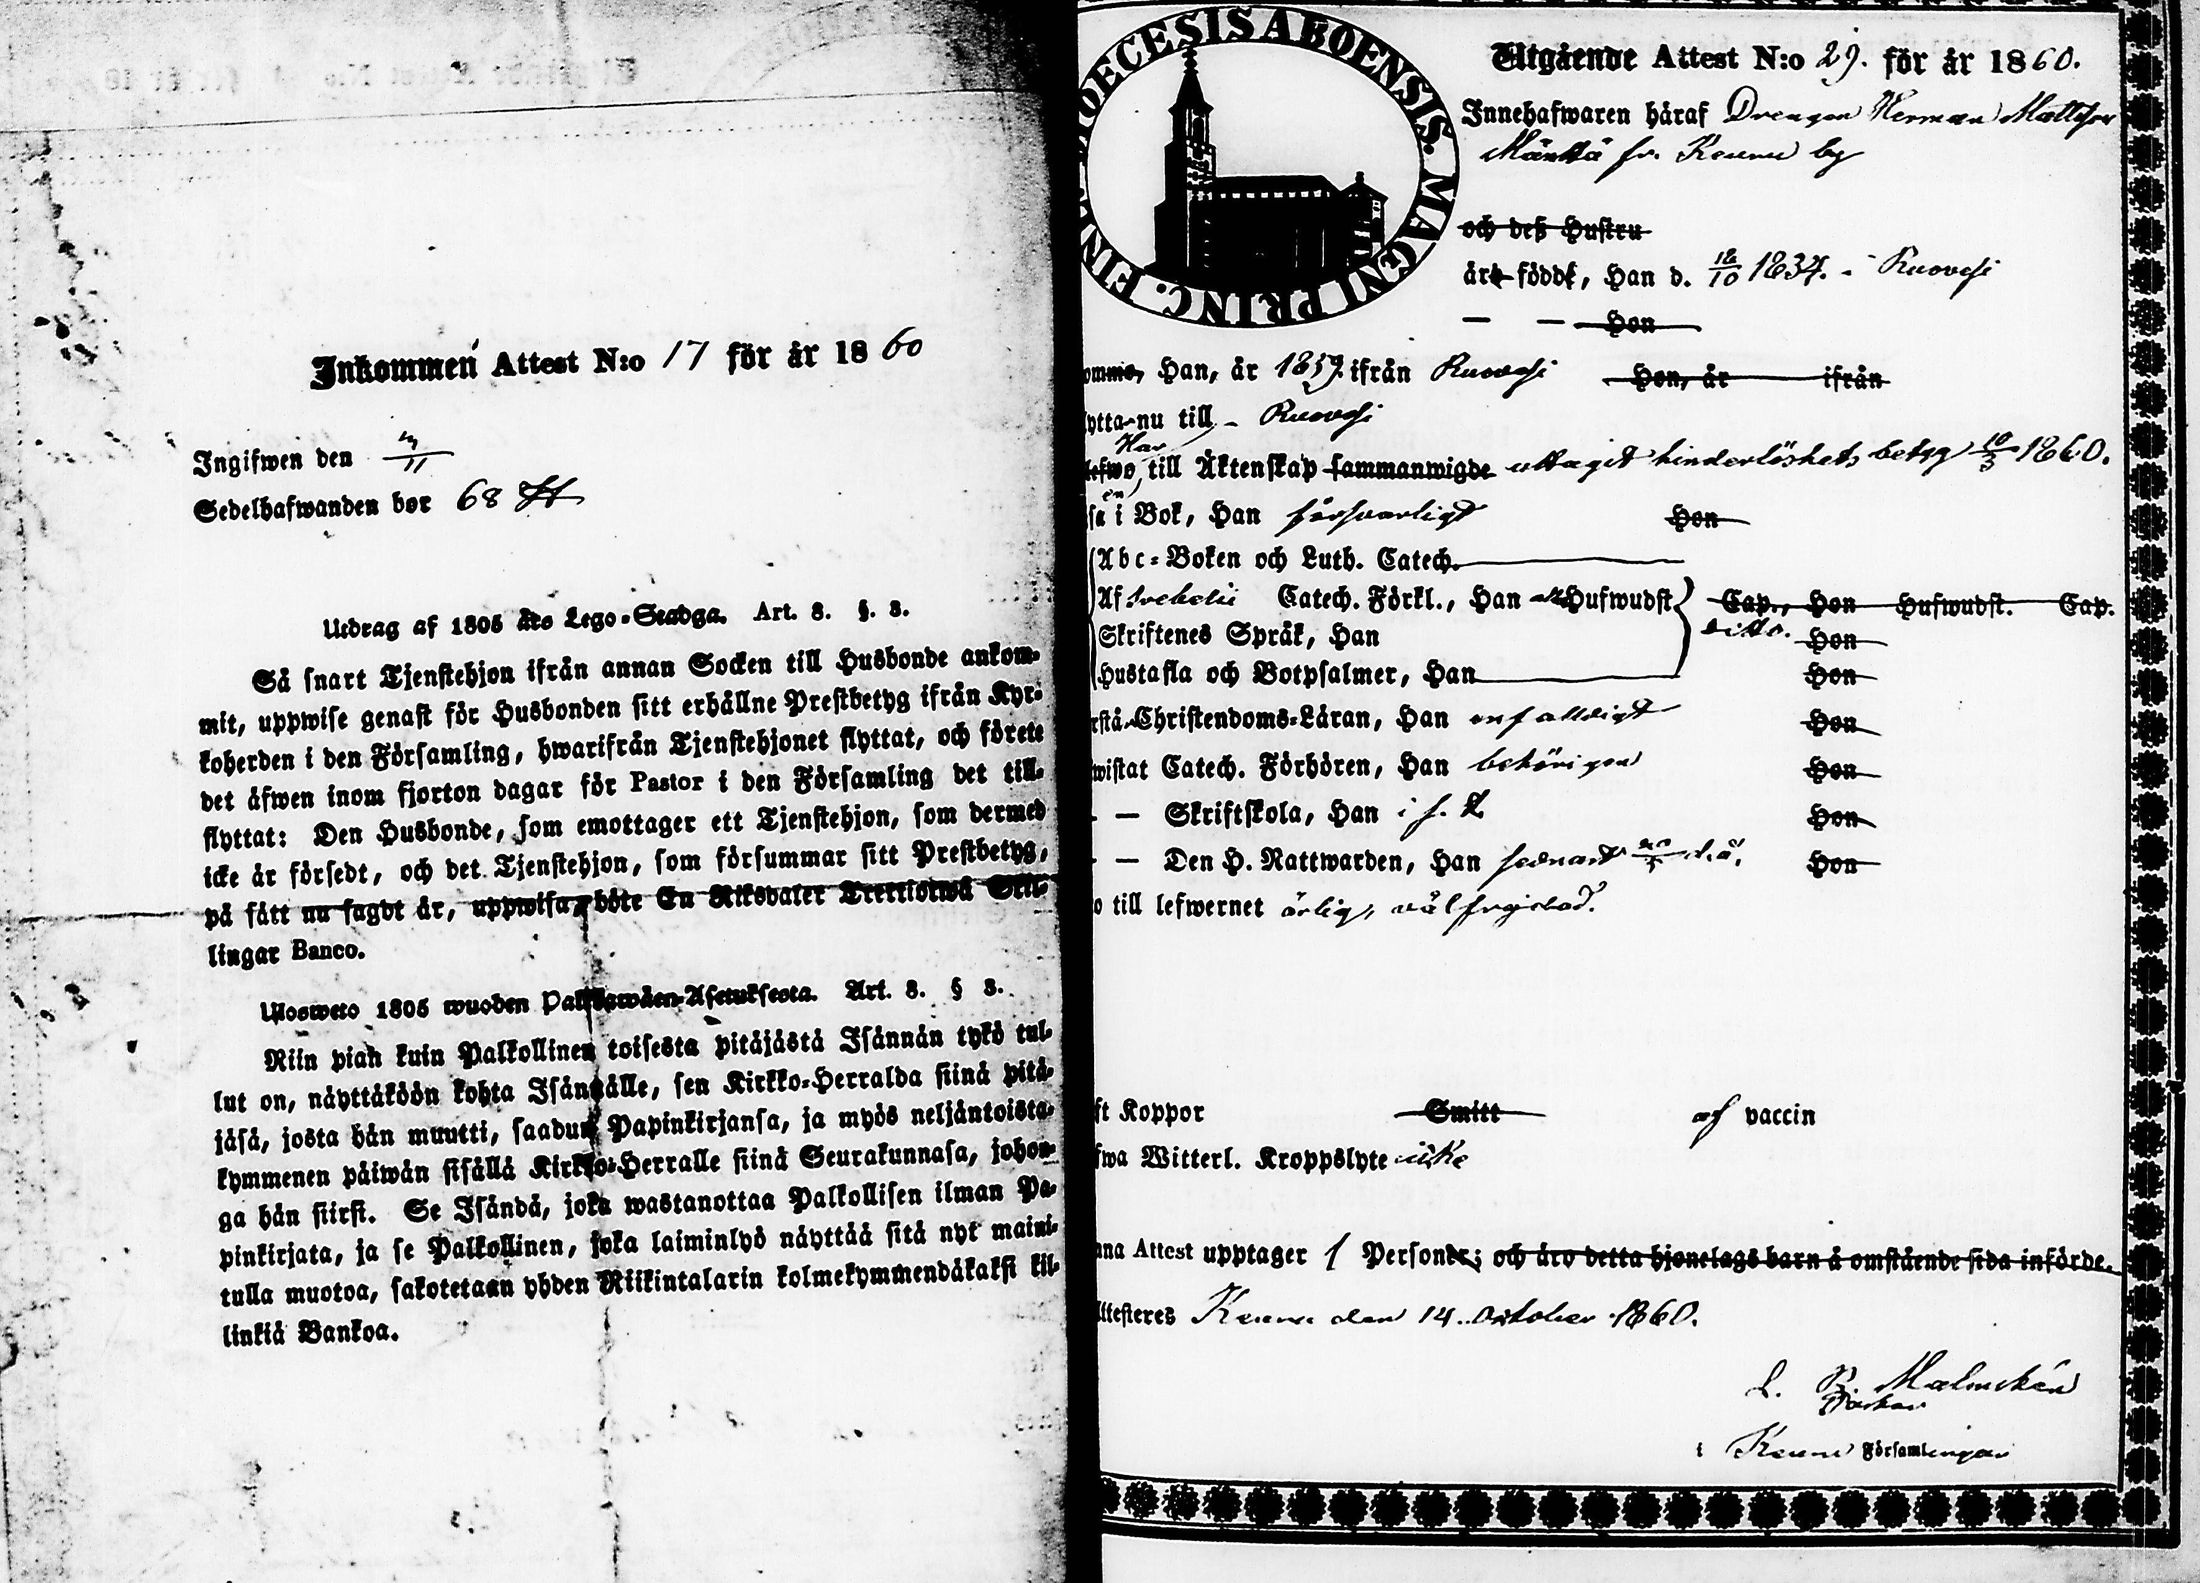 Inkommen Attest N:o 17 för år 1860
Ingifwen den 3/11
Sedelhafwanden bor 68
Utdrag af 1805 års Lego-Stadga. Art. 8. §. 3.
Så snart Tjenstehjon ifrån annan Socken till Husbonde ankom-
mit, uppwise genast för Husbonden sitt erhållne Prestbetyg ifrån Kyr-
koherden i den Församling, hwarifrån Tjenstehjonet flyttat, och förete
det äfwen inom fjorton dagar för Pastor i den Församling det till-
flyttat: Den Husbonde, som emottager ett Tjenstehjon, som dermed
icke är försedt, och det Tjenstehjon, som försummar sitt Prestbetyg,
på sätt nu sagdt är, uppwisa, böte En Riksdaler Trettiotwå Skil-
lingar Banco.
Ulosweto 1805 wuoden Palkkawäen-Asetuksesta. Art. 8. § 3.
Niin pian kuin Palkollinen toisesta pitäjästä Isännän tykö tul-
lut on, näyttäköön kohta Isännälle, sen Kirkko-Herralda siinä pitä-
jäsä, josta hän muutti, saadun Papinkirjansa, ja myös neljäntoista-
kymmenen päiwän sisällä Kirkko-Herralle siinä Seurakunnasa, johon-
ga hän siirsi. Se Isändä, joka wastanottaa Palkollisen ilman Pa-
pinkirjata, ja se Palkollinen, joka laiminlyö näyttää sitä nyt maini-
tulla muotoa, sakotetaan yhden Riikintalarin kolmekymmendäkaksi kil-
linkiä Bankoa.
DIOECESIS ABOENSIS. MAGNI PRINC. FIN
Utgående Attest N:o 29. för år 1860.
Innehafwaren häraf Drengen Herman Mattsson
Mänttä fr. Keuru by
och deß Hustru
äro födde, Han d. 18/10 1834. i Ruovesi
— — Hon
omme, Han, år 1859. ifrån Ruovesi Hon, år ifrån
lytta nu till Ruovesi
Har
lefwo, till Äktenskap sammanwigde uttagit hinderlöshets betyg 10/3 1860.
en
sa i Bok, Han försvarligt Hon
Abc-Boken och Luth. Catech.
Af Svebelii Catech. Förkl., Han Hufwudst Cap., Hon Hufwudst. Cap.
Skriftenes Språk, Han ditto. Hon
Hustafla och Botpsalmer, Han Hon
rstå Christendoms-Läran, Han enfaldigt Hon
wistat Catech. Förhören, Han behörigen Hon
— — Skriftskola, Han i s. t. Hon
— — Den H. Nattwarden, Han senast d.å. Hon
o till lefwernet ärlig, välfrejdad.
ft Koppor Smitt af vaccin
fwa Witterl. Kroppslyte icke
nna Attest upptager 1 Personer; och äro detta hjonelags barn å omstående sida införde.
Attesteres Keuru den 14. October 1860.
L. P. Malmstén
Pastor
i Keuru Församlingar